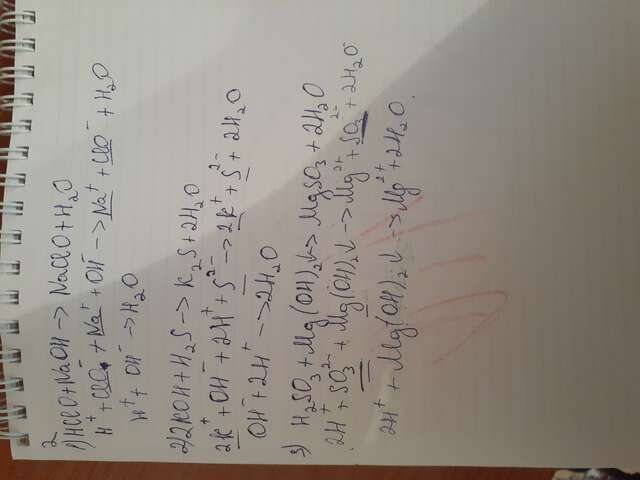 2
1) HClO + NaOH → NaClO + H₂O
H⁺ + ClO⁻ + Na⁺ + OH⁻ → Na⁺ + ClO⁻ + H₂O
H⁺ + OH⁻ → H₂O
2) 2KOH + H₂S → K₂S + 2H₂O
2K⁺ + OH⁻ + 2H⁺ + S²⁻ → 2K⁺ + S²⁻ + 2H₂O
OH⁻ + 2H⁺ → 2H₂O
3) H₂SO₃ + Mg(OH)₂↓ → MgSO₃ + 2H₂O
2H⁺ + SO₃²⁻ + Mg(OH)₂↓ → Mg²⁺ + SO₃²⁻ + 2H₂O
2H⁺ + Mg(OH)₂↓ → Mg²⁺ + 2H₂O.